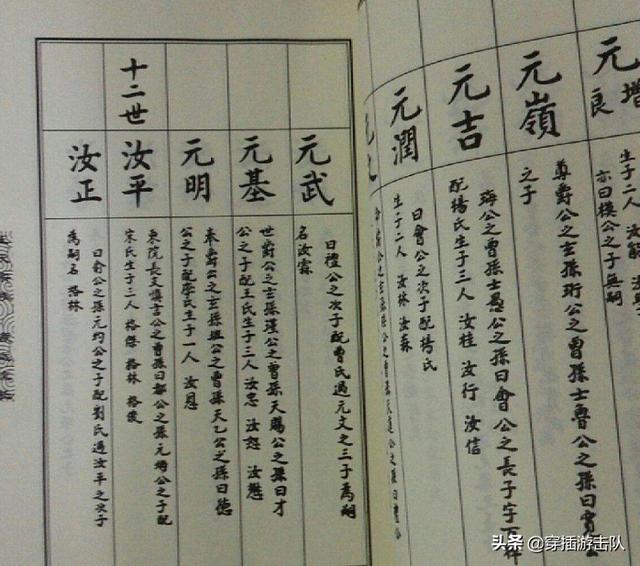 元增
良
生子二人
亦曰模公之子無嗣
元嶺
尊爵公之玄孫珩公之曾孫士魯公之孫曰
之子
元吉
海公之曾孫士愚公之孫曰會公之長子字
配楊氏生子三人 汝桂 汝行 汝信
元潤
曰會公之次子配楊氏
生子二人 汝林 汝森
元武
曰禮公之次子配曹氏過元文之三子為嗣
名汝霖
元基
世爵公之玄孫瑾公之曾孫天賜公之孫曰才
公之子配王氏生子三人 汝忠 汝恕 汝懋
元明
奉爵公之玄孫公之曾孫天乙公之孫曰德
公之子配李氏生子一人 汝恩
十二世
汝平
東院長支慎言公之曾孫曰公之孫元均公之子配
宋氏生子三人 格傑 格林 格
汝正
曰公之孫元灼公之子配劉氏過汝平之次子
為嗣名 格林
头条 @穿插游击队